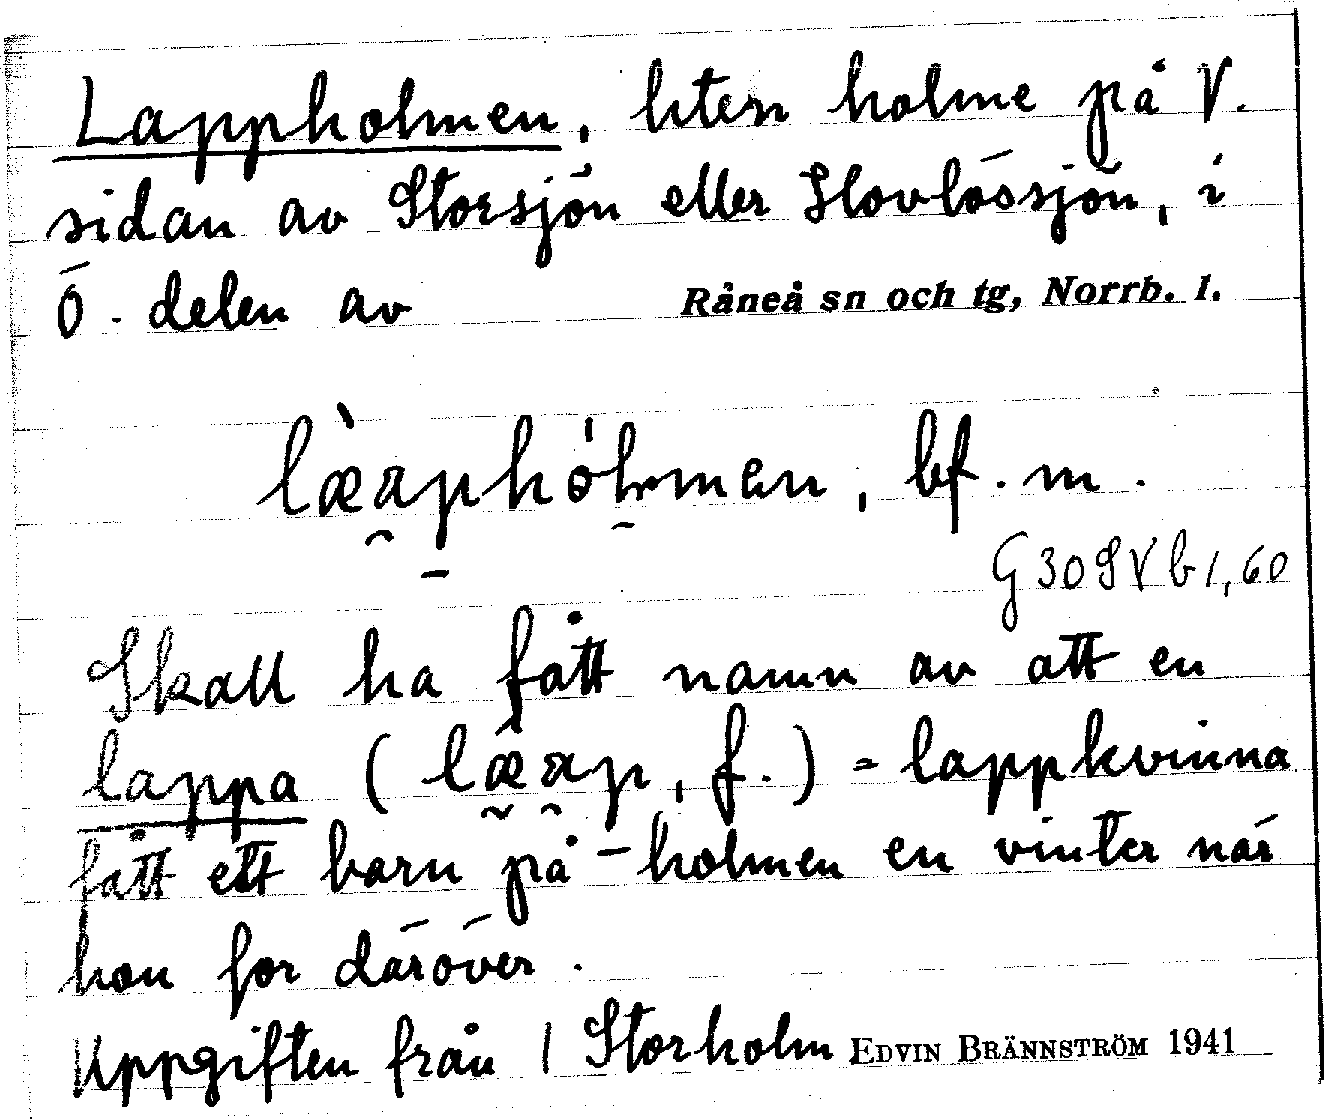 Lappholmen, liten holme på V.
sidan av Storsjön eller Slovlössjön, i
Ö. delen av Råneå sn och tg, Norrb. l.
bf. m.
G 30 S V b 1, 60
Skall ha fått namn av att en
lappa ( f.) = lappkvinna
fått ett barn på -holmen en vinter när
hon for däröver.
Uppgiften från 1 Storholm EDVIN BRÄNNSTRÖM 1941